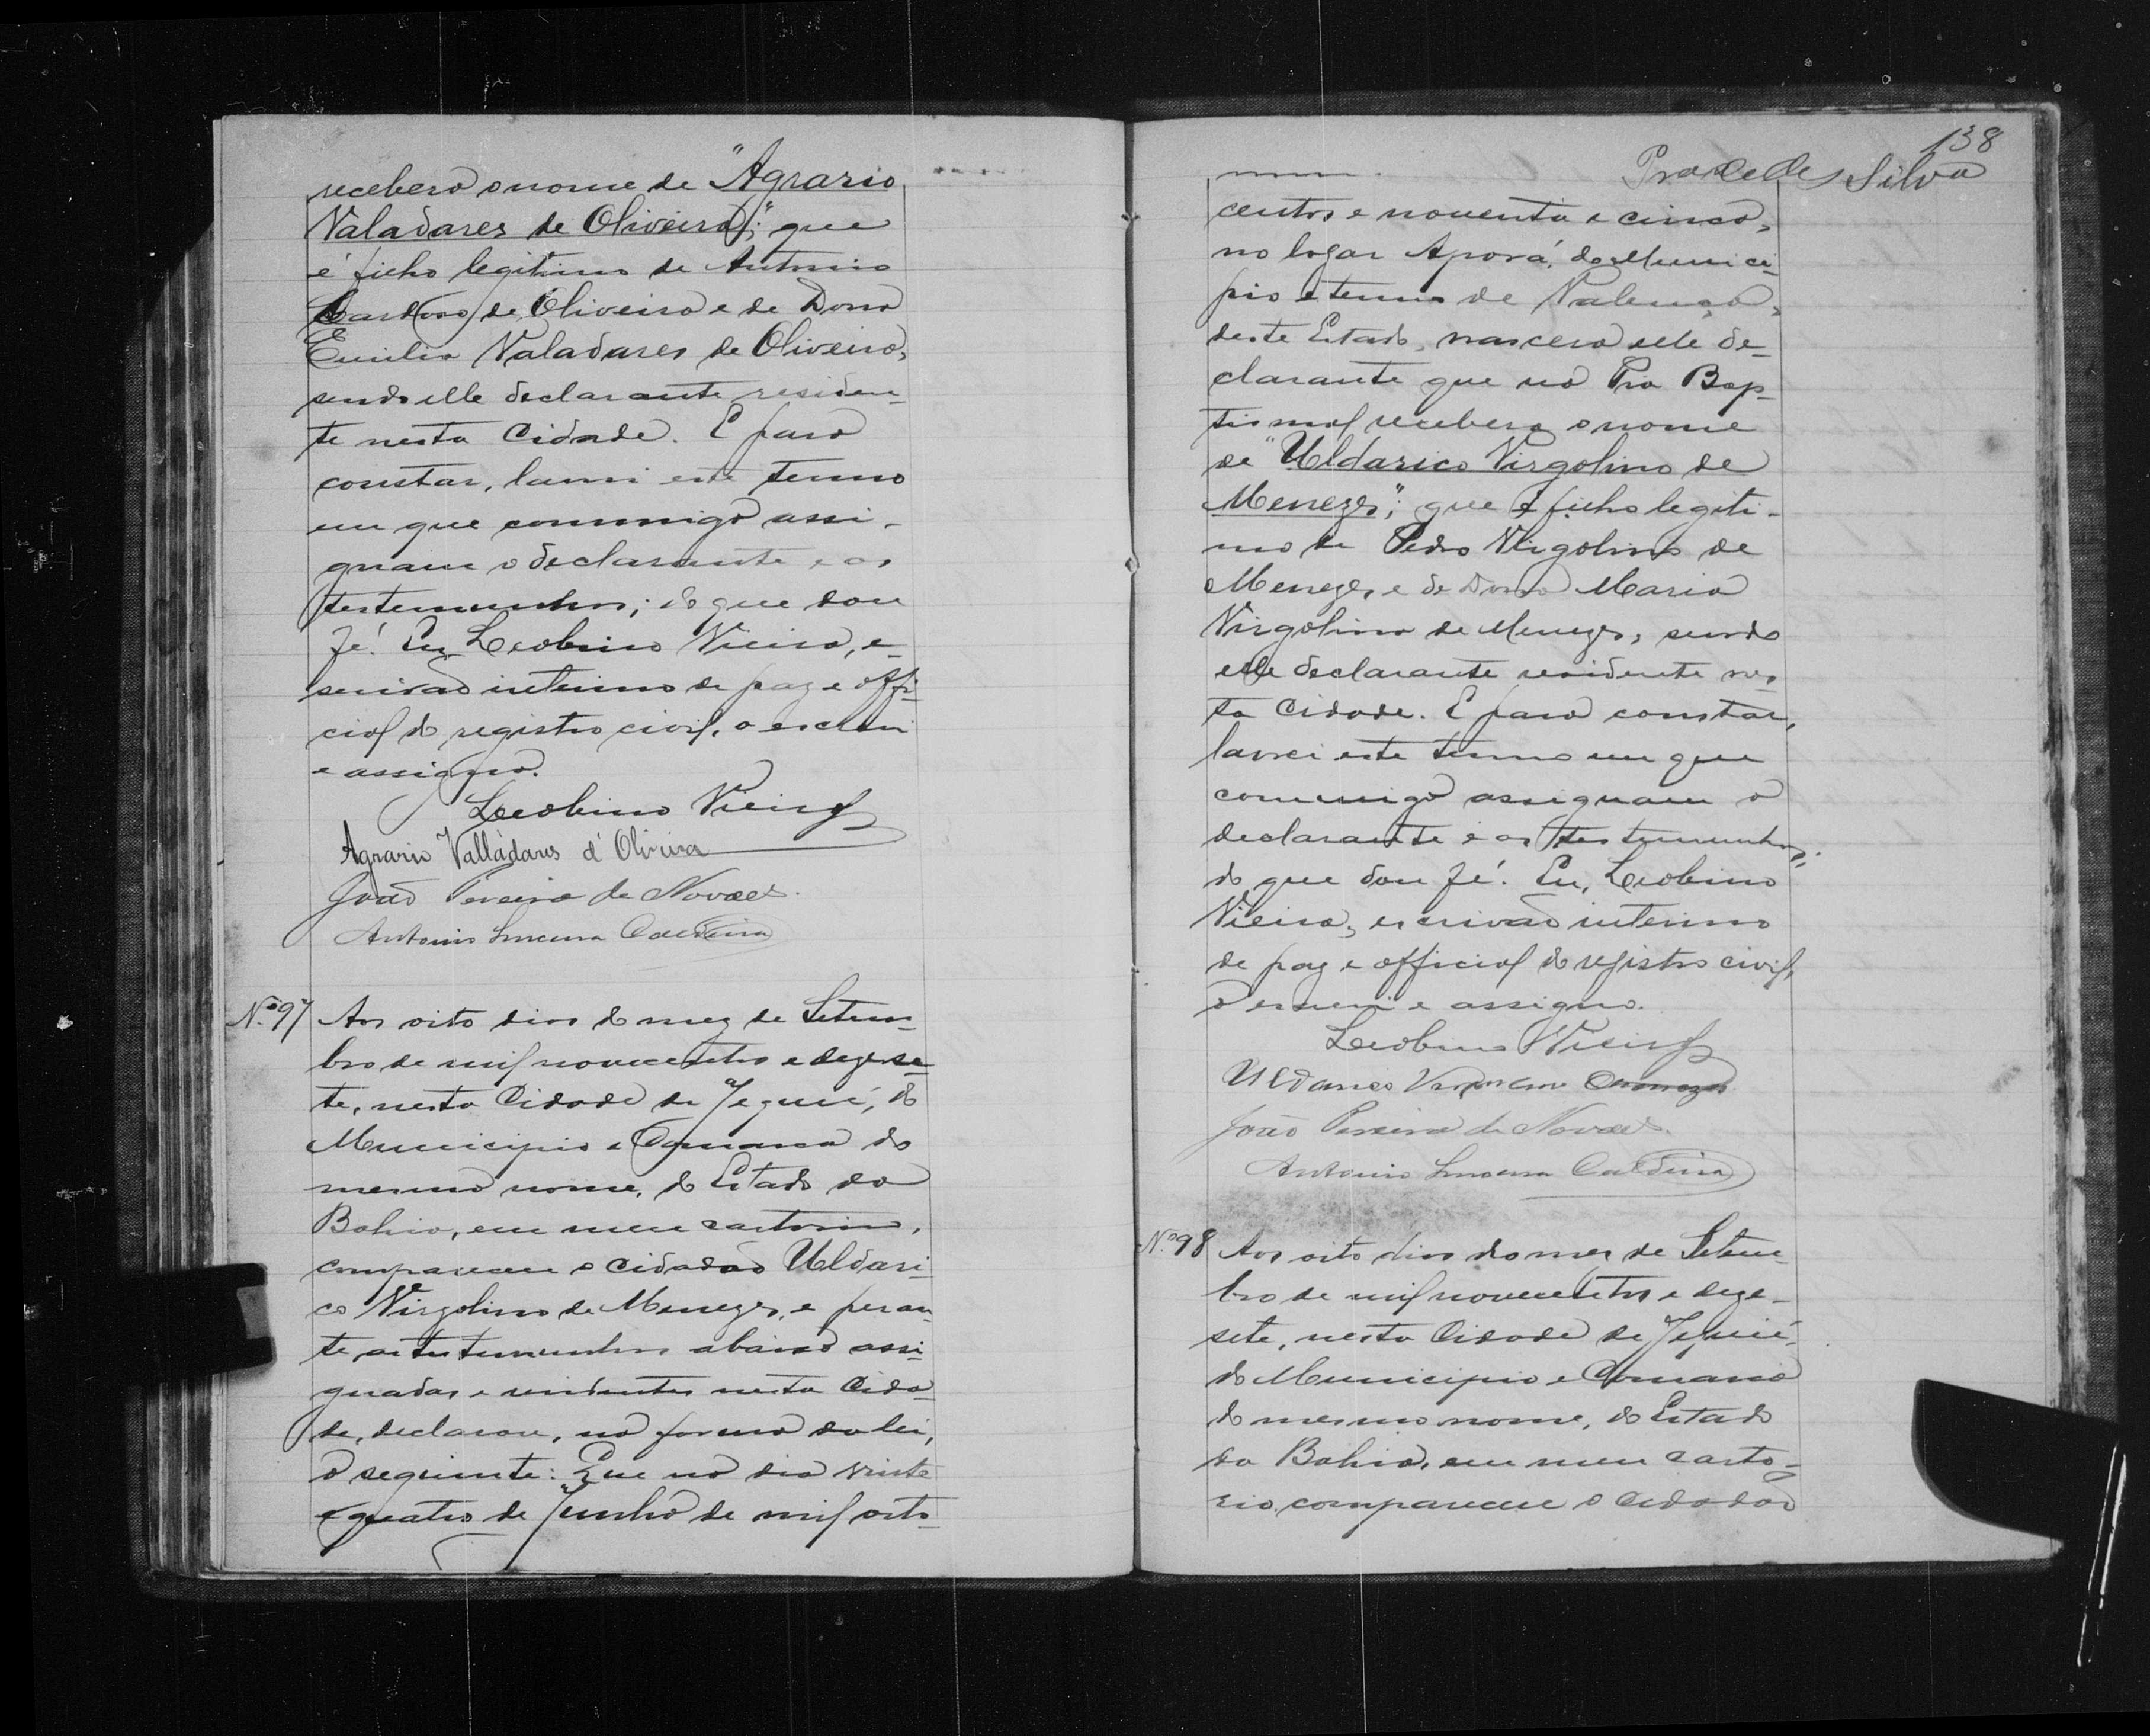 recebera o nome de "Agrario
Valadares de Oliveira"; que
é filho legitimo de Antonio
Cardoso de Oliveira e de Dona
Emilia Valadares de Oliveira,
sendo elle declarante residen-
te nesta Cidade. E para
constar, lavrei este termo
em que commigo assi-
gnam o declarante e as
testemunhas; do que dou
fé. Eu Leobino Vieira, e-
scrivão interino de paz e offi-
cial do registro civil, o escrevi
e assigno.
Leobino Vieira
Agrario Valladares d'Oliveira
João Pereira de Novaes.
Antonio Caldeira
Nº 97
Aos oito dias do mez de Setem-
bro de mil novecentos e dezese-
te, nesta Cidade de Jequié, do
Municipio e Comarca do
mesmo nome, do Estado da
Bahia, em meu cartorio,
compareceu o cidadão Uldari-
co Virgolino de Menezes, e peran-
te as testemunhas abaixo assi-
gnadas e residentes nesta Cida-
de, declarou, na forma da lei,
o seguinte: Que no dia vinte
e quatro de Junho de mil oito-
138
Silva
centos e noventa e cinco,
no logar Aporá, do Munici-
pio e termo de Valença,
deste Estado, nascera elle de-
clarante que na Pia Bap-
tismal recebera o nome
de "Uldarico Virgolino de
Menezes"; que é filho legiti-
mo de Pedro Virgolino de
Menezes e de Dona Maria
Virgolina de Menezes, sendo
elle declarante residente nes-
ta Cidade. E para constar,
lavrei este termo em que
commigo assignam o
declarante e as testemunhas;
do que dou fé. Eu, Leobino
Vieira, escrivão interino
de paz e official do registro civil,
o escrevi e assigno.
Leobino Vieira
Uldarico Menezes
João Pereira de Novaes.
Antonio Caldeira
Nº 98
Aos oito dias do mez de Setem-
bro de mil novecentos e deze-
sete, nesta Cidade de Jequié,
do Municipio e Comarca
do mesmo nome, do Estado
da Bahia, em meu carto-
rio compareceu o cidadão